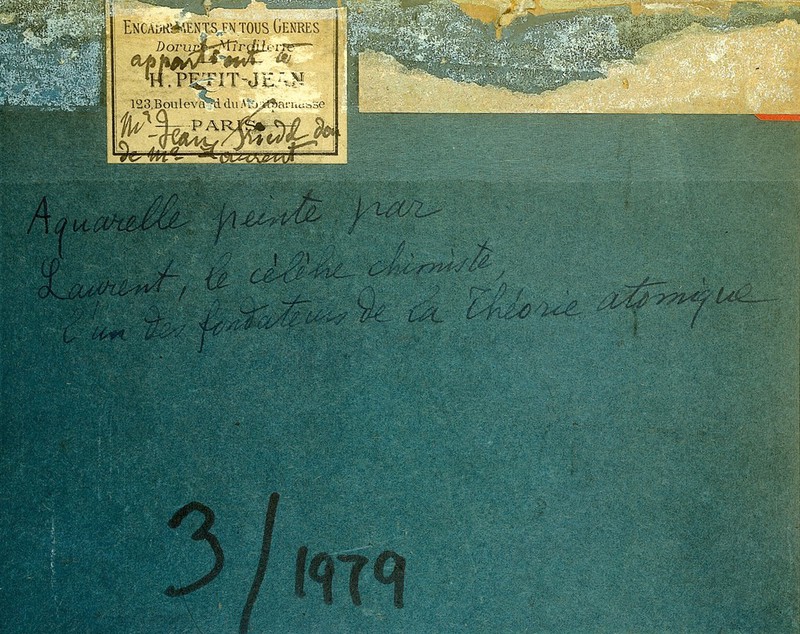 ENCADREMENTS EN TOUS GENRES
Dorure Miroiterie
appartient à
H. PETIT-JEAN
123, Boulevard du Montparnasse
PARIS
Mr Jean Friedel don
de Mr Laurent
Aquarelle peinte par
Laurent, le célèbre chimiste,
l'un des fondateurs de la Théorie atomique
3/1979